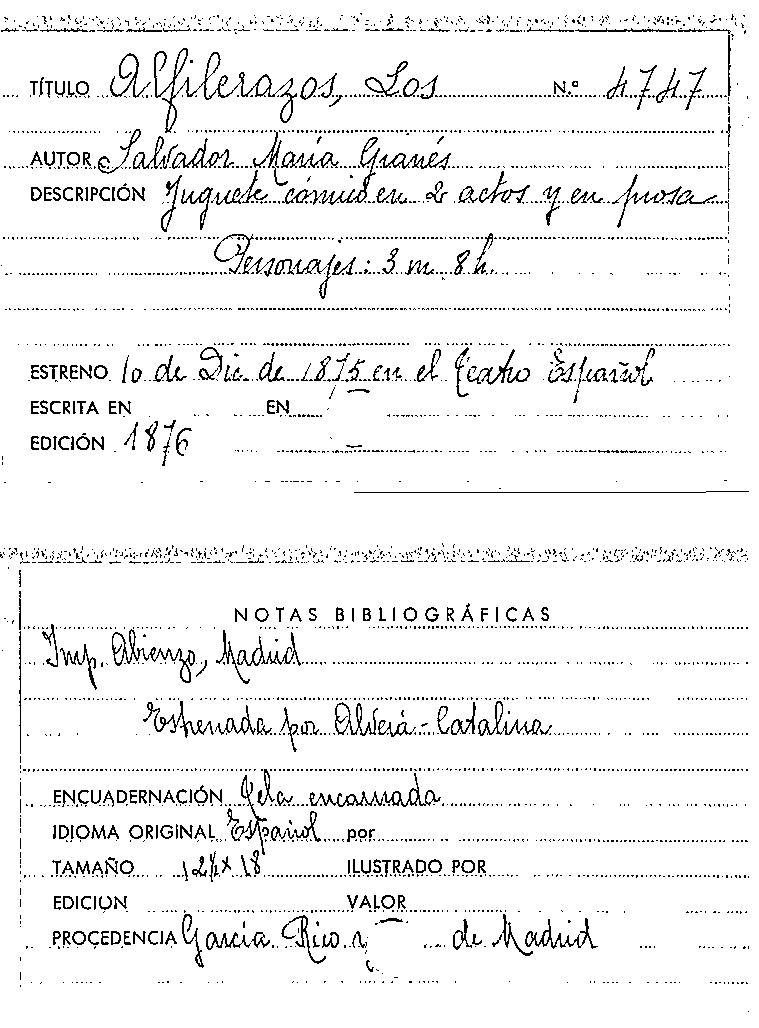 TÍTULO Alfilerazos, Los N.º 4747
AUTOR Salvador María Granés
DESCRIPCIÓN Juguete cómico en 2 actos y en prosa
Personajes: 3 m 8 h.
ESTRENO 10 de Dic de 1875 en el Teatro Español
ESCRITA EN EN
EDICIÓN 1876
NOTAS BIBLIOGRÁFICAS
Imp. Abienzo, Madrid
Estrenada por Alverá-Catalina
ENCUADERNACIÓN Tela encarnada
IDIOMA ORIGINAL Español por
TAMAÑO x 18 ILUSTRADO POR
EDICION VALOR
PROCEDENCIA García Rico de Madrid